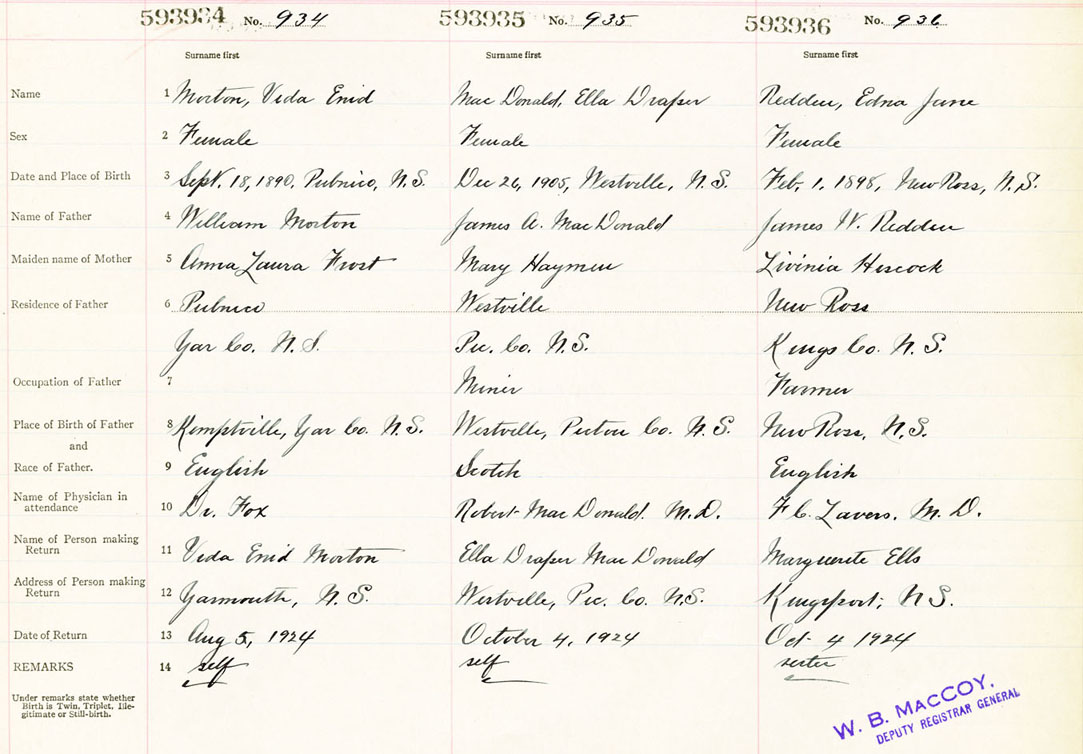 593934 No. 934 593935 No. 935 593936 No. 936
Surname first Surname first Surname first
Name 1 Morton, Vida Enid Mac Donald, Ella Draper Redden, Edna Jane
Sex 2 Female Female Female
Date and Place of Birth 3 Sept. 18, 1890, Pubnico, N.S. Dec 26, 1905, Westville, N.S. Feb. 1, 1898, New Ross, N.S.
Name of Father 4 William Morton James A. MacDonald James W. Redden
Maiden name of Mother 5 Anna Laura Frost Mary Haymen Livinia Hiscock
Residence of Father 6 Pubnico Westville New Ross
Yar Co. N.S. Pic. Co. N.S. Kings Co. N.S.
Occupation of Father 7 Miner Farmer
Place of Birth of Father 8 Kemptville, Yar Co. N.S. Westville, Pictou Co. N.S. New Ross, N.S.
and
Race of Father. 9 English Scotch English
Name of Physician in
attendance 10 Dr. Fox Robert Mac Donald. M.D. F.C. Lavers. M.D.
Name of Person making
Return 11 Vida Enid Morton Ella Draper Mac Donald Marguerite Ells
Address of Person making
Return 12 Yarmouth, N.S. Westville, Pic. Co. N.S. Kingsport, N.S.
Date of Return 13 Aug 5, 1924 October 4, 1924 Oct 4 1924
REMARKS 14 self self sister
Under remarks state whether
Birth is Twin, Triplet, Ille-
gitimate or Still-birth.
W. B. MACCOY.
DEPUTY REGISTRAR GENERAL